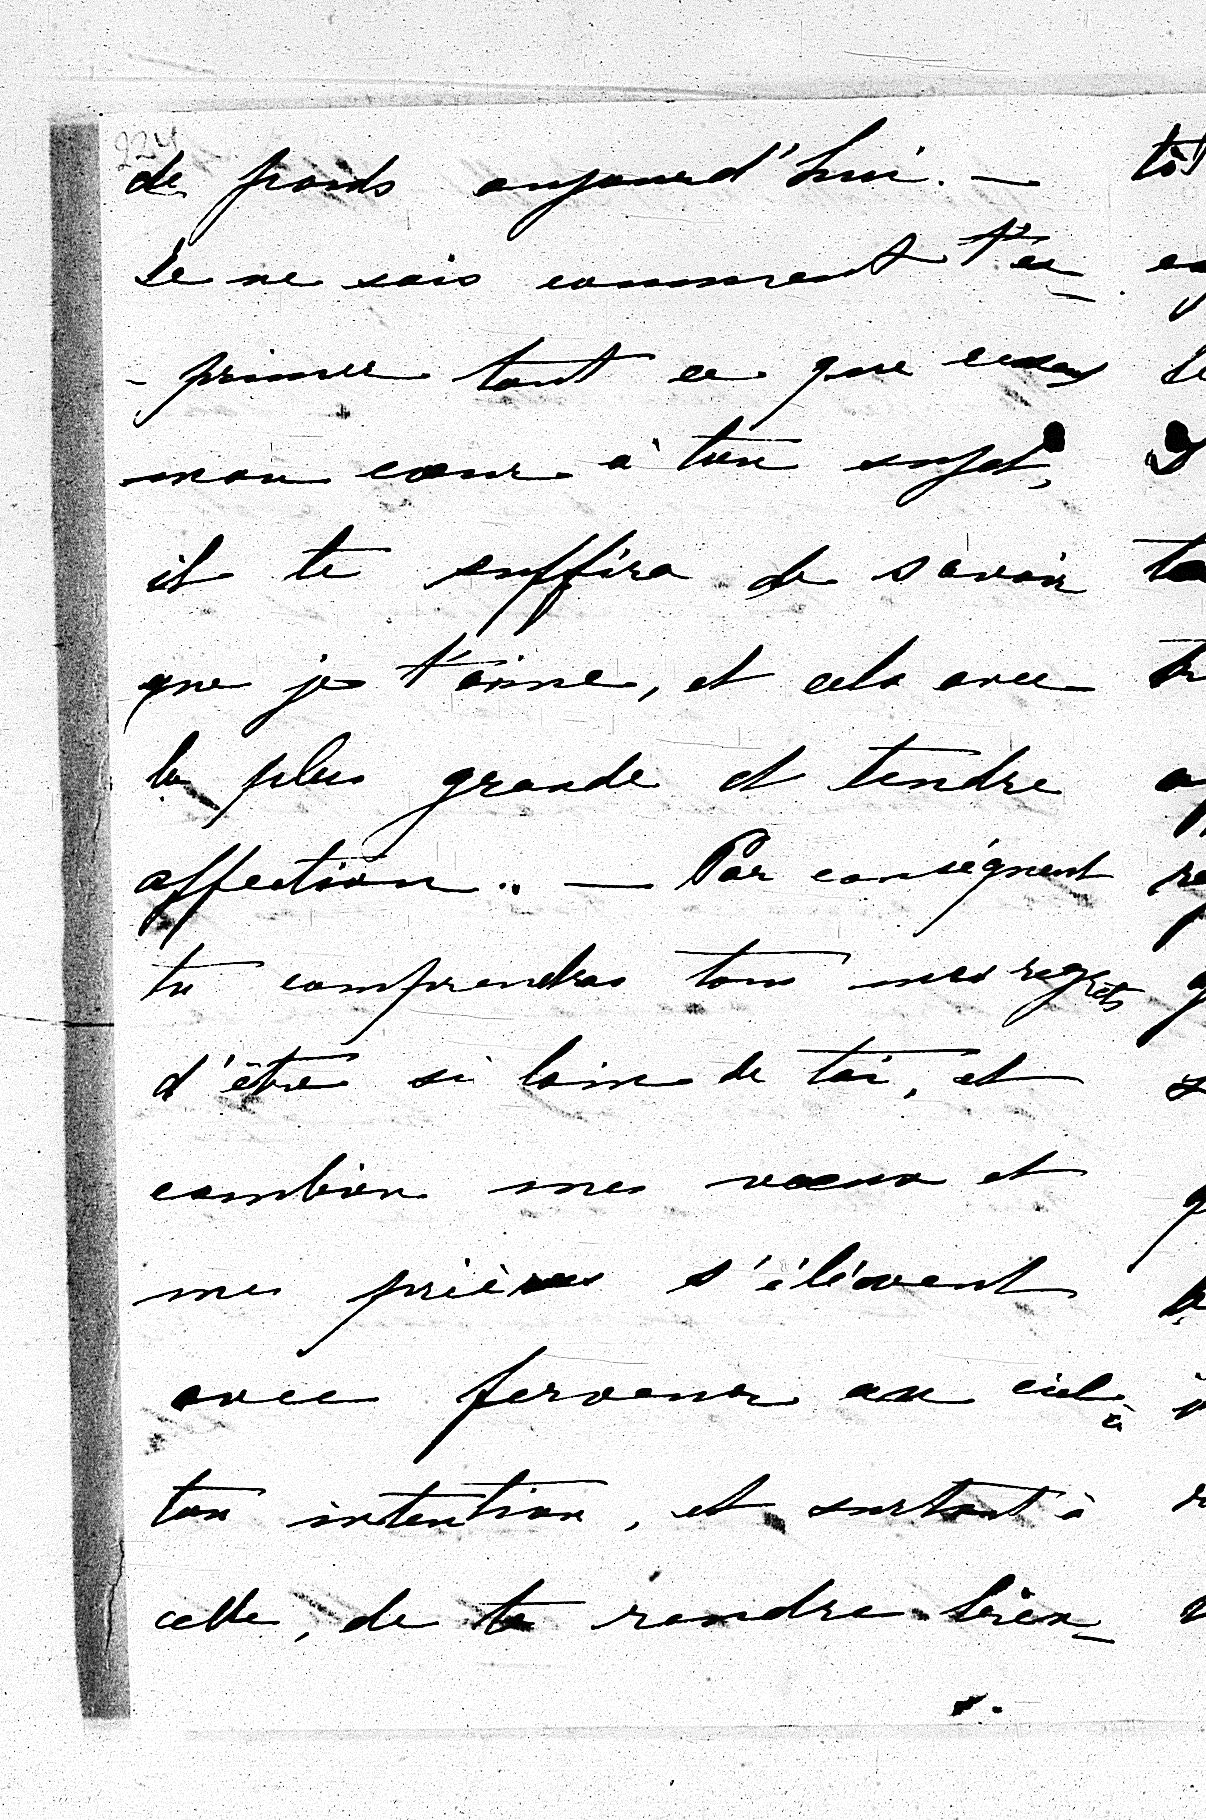 224
de poids aujourd'hui. —
Je ne sais comment t'ex-
-primer tout ce que ressent
mon cœur à ton sujet,
il te suffira de savoir
que je t'aime, et cela avec
la plus grande et tendre
affection.. — Par conséquent
tu comprendras tous mes regrets
d'être si loin de toi, et
combien mes vœux et
mes prières s'élèvent
avec ferveur au ciel à
ton intention, et surtout à
celle, de te rendre bien-